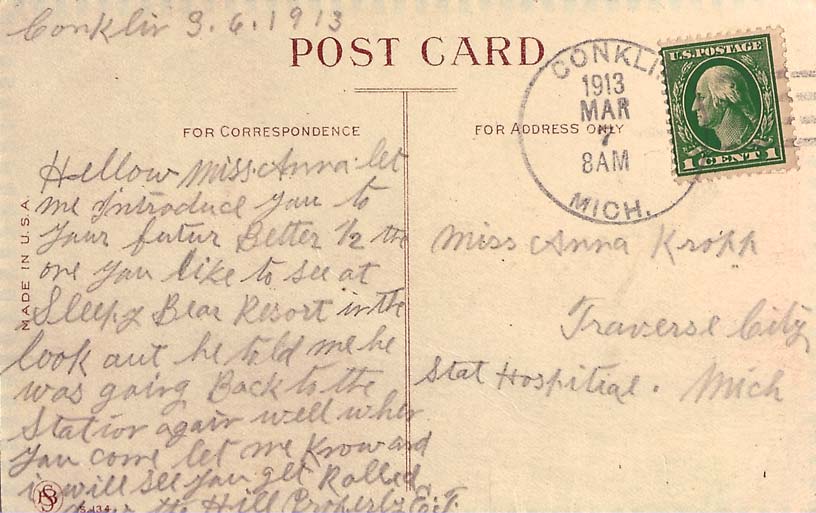 Conklin 3.6.1913
POST CARD
CONKLIN
1913
MAR
7
8AM
MICH.
U.S. POSTAGE
1 CENT 1
FOR CORRESPONDENCE
FOR ADDRESS ONLY
MADE IN U.S.A.
Hellow Miss Anna let
me Introduce you to
your futur Better 1/2 the
one you like to see at
Sleepy Bear Resort in the
look out he told me he
was going Back to the
Station again well when
you come let me Know and
i will see you get Rolled
down the Hill Properly E.T.
Miss Anna Kropp
Traverse City
Stat Hospitial. Mich
S 134